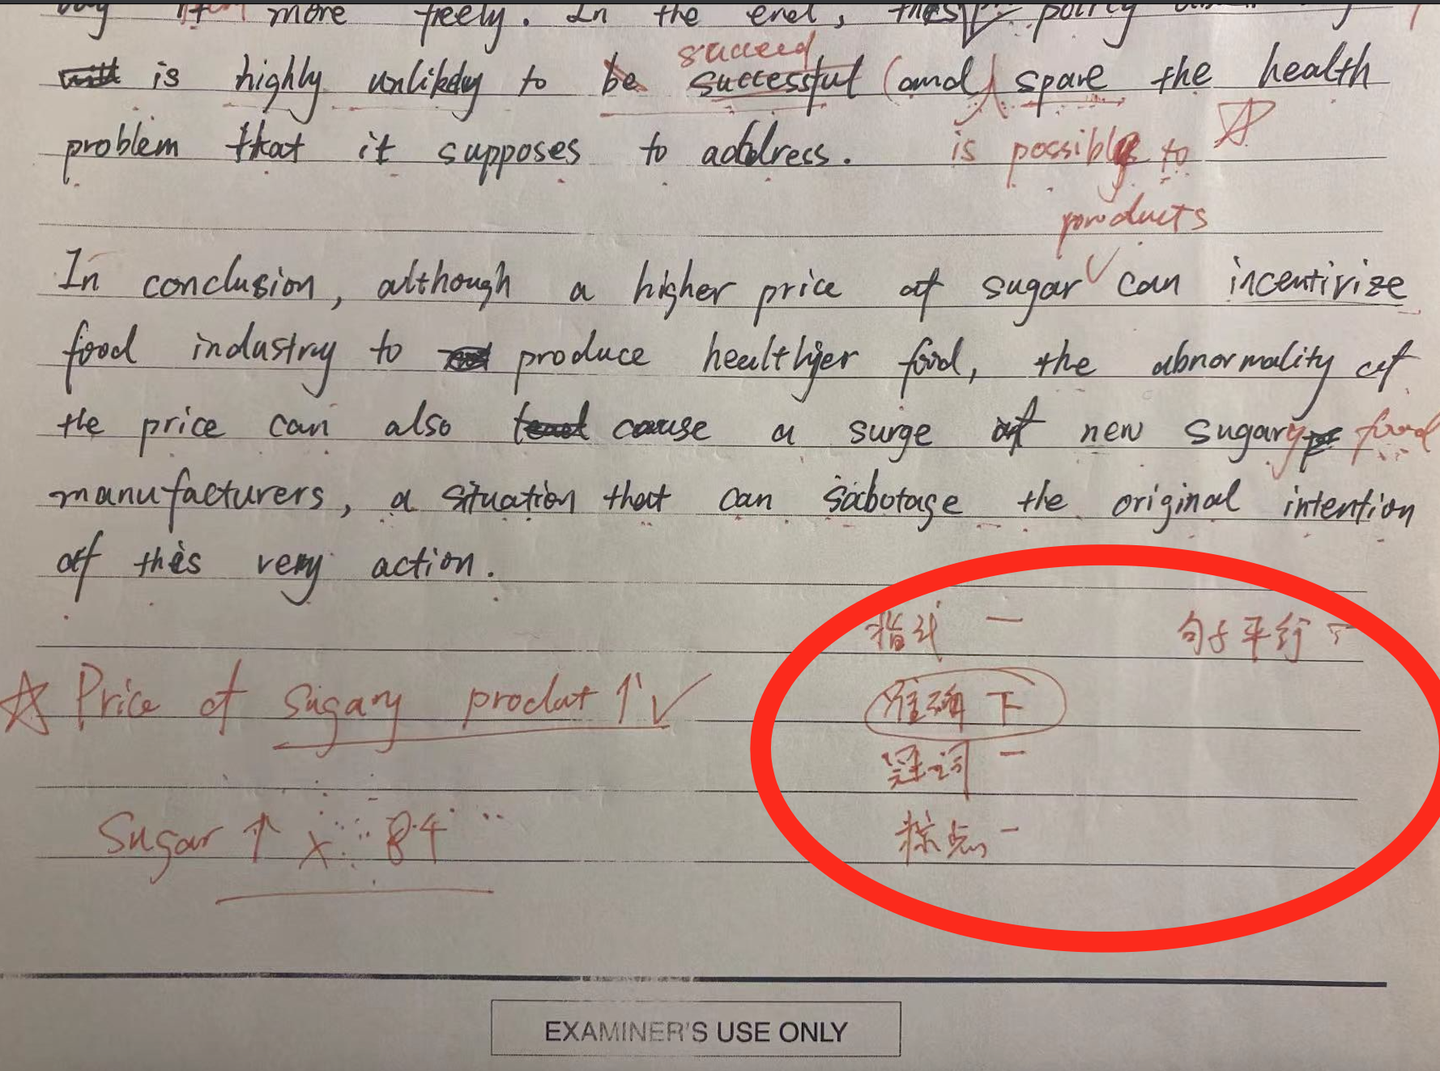 more freely. In the end, this
succeed
will is highly unlikely to be successful (and) spare the health
problem that it supposes to address. is possible to
products
In conclusion, although a higher price of sugar can incentivize
food industry to produce healthyer food, the abnormality of
the price can also cause a surge of new sugary food
manufacturers, a situation that can sabotage the original intention
of this very action.
指代 一 句子平行 下
Price of sugary product ↑ ✓ 准确 下
冠词 一
Sugar ↑ × 标点 一
EXAMINER'S USE ONLY